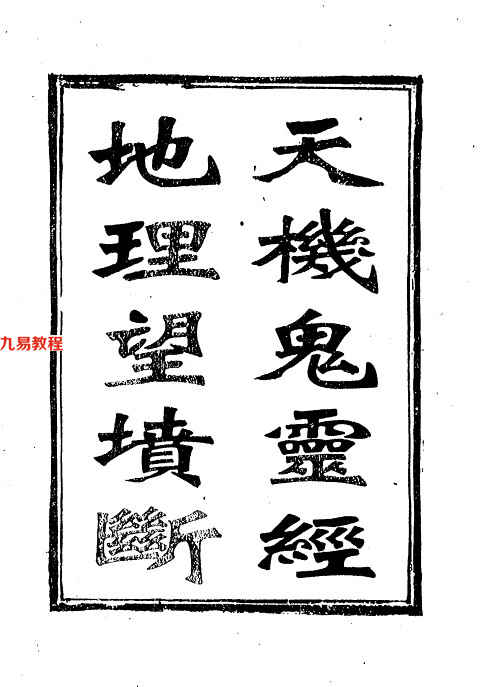 天機鬼靈經
地理望墳斷
九易教程